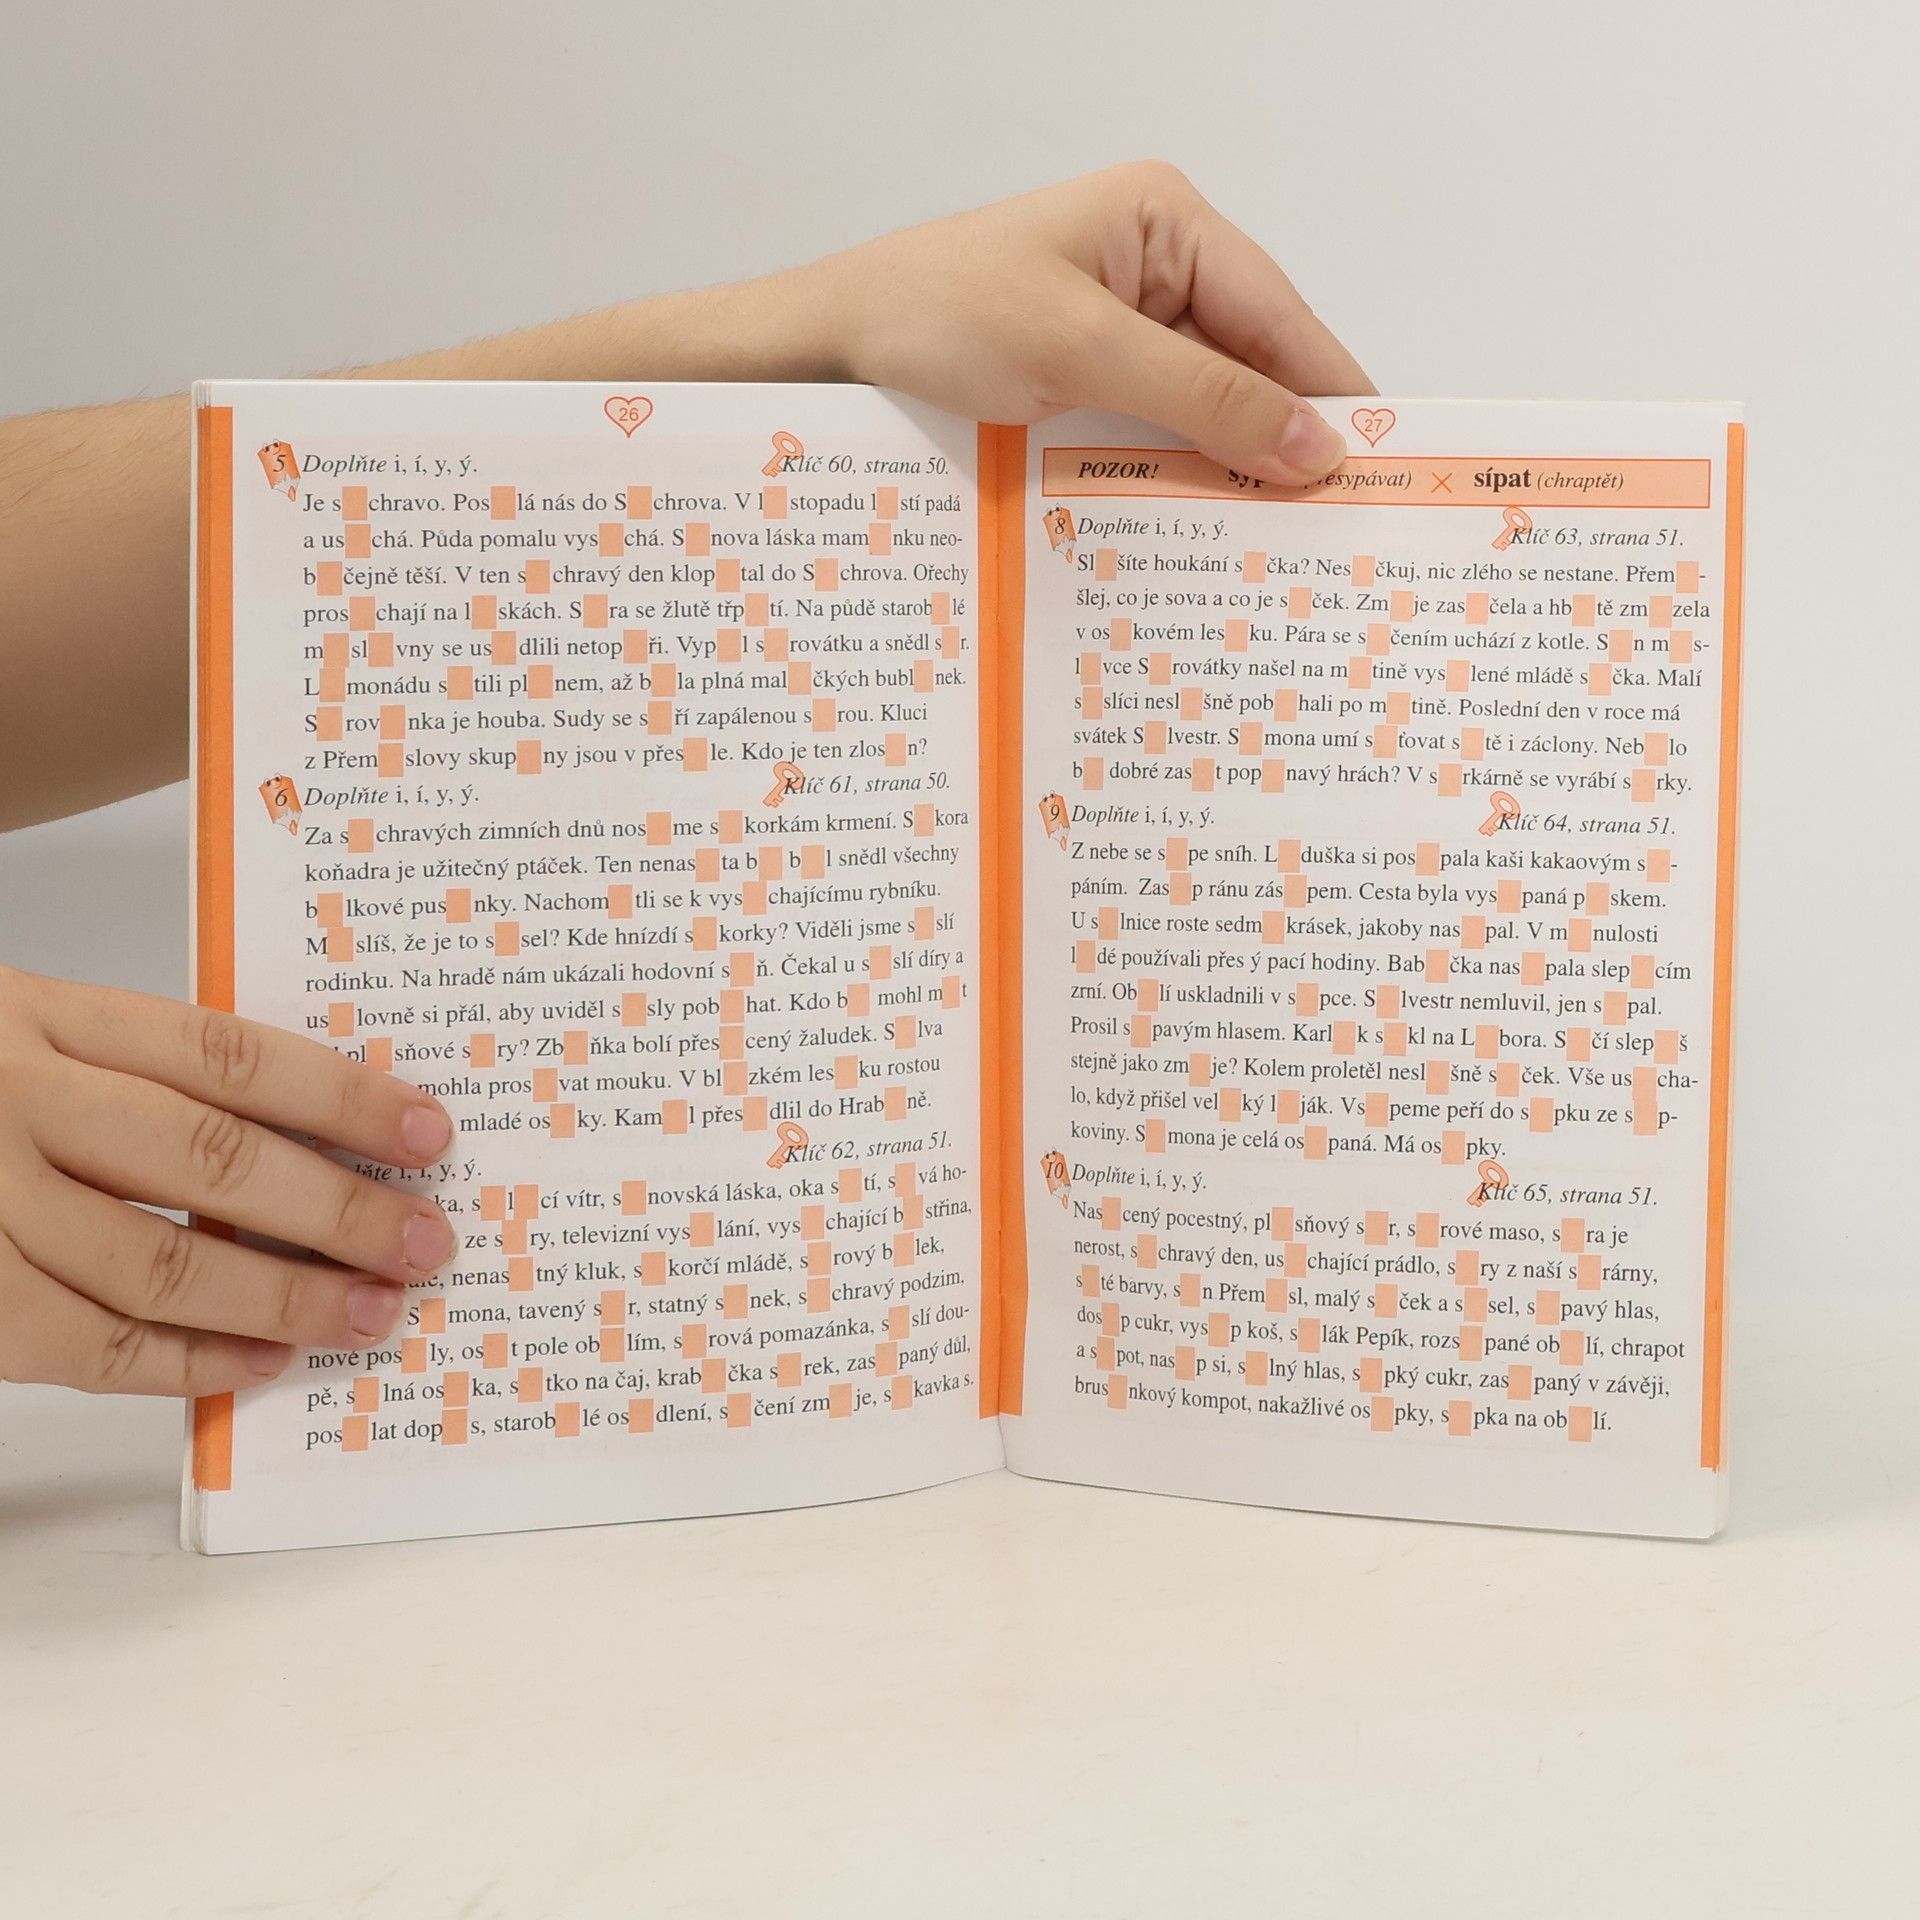 26
5 Doplňte i, í, y, ý. Klíč 60, strana 50.
Je s chravo. Pos lá nás do S chrova. V l stopadu l stí padá
a us chá. Půda pomalu vys chá. S nova láska mam nku neo-
b čejně těší. V ten s chravý den klop tal do S chrova. Ořechy
pros chají na l skách. S ra se žlutě třp tí. Na půdě starob lé
m sl vny se us dlili netop ři. Vyp l s rovátku a snědl s r.
L monádu s tili pl nem, až b la plná mal čkých bubl nek.
S rov nka je houba. Sudy se s ří zapálenou s rou. Kluci
z Přem slovy skup ny jsou v přes le. Kdo je ten zlos n?
6 Doplňte i, í, y, ý. Klíč 61, strana 50.
Za s chravých zimních dnů nos me s korkám krmení. S kora
koňadra je užitečný ptáček. Ten nenas ta b b l snědl všechny
b lkové pus nky. Nachom tli se k vys chajícímu rybníku.
M slíš, že je to s sel? Kde hnízdí s korky? Viděli jsme s slí
rodinku. Na hradě nám ukázali hodovní s ň. Čekal u s slí díry a
us lovně si přál, aby uviděl s sly pob hat. Kdo b mohl m t
pl sňové s ry? Zb ňka bolí přes cený žaludek. S lva
mohla pros vat mouku. V bl zkém les ku rostou
mladé os ky. Kam l přes dlil do Hrab ně.
i, í, y, ý. Klíč 62, strana 51.
ka, s l cí vítr, s novská láska, oka s tí, s vá ho-
ze s ry, televizní vys lání, vys chající b střina,
nenas tný kluk, s korčí mládě, s rový b lek,
S mona, tavený s r, statný s nek, s chravý podzim,
nové pos ly, os t pole ob lím, s rová pomazánka, s slí dou-
pě, s lná os ka, s tko na čaj, krab čka s rek, zas paný důl,
pos lat dop s, starob lé os dlení, s čení zm je, s kavka s.
27
POZOR! esypávat) × sípat (chraptět)
8 Doplňte i, í, y, ý. Klíč 63, strana 51.
Sl šíte houkání s čka? Nes čkuj, nic zlého se nestane. Přem -
šlej, co je sova a co je s ček. Zm je zas čela a hb tě zm zela
v os kovém les ku. Pára se s čením uchází z kotle. S n m s-
l vce S rovátky našel na m tině vys lené mládě s čka. Malí
s slíci nesl šně pob hali po m tině. Poslední den v roce má
svátek S lvestr. S mona umí s ťovat s tě i záclony. Neb lo
b dobré zas t pop navý hrách? V s rkárně se vyrábí s rky.
9 Doplňte i, í, y, ý. Klíč 64, strana 51.
Z nebe se s pe sníh. L duška si pos pala kaši kakaovým s -
páním. Zas p ránu zás pem. Cesta byla vys paná p skem.
U s lnice roste sedm krásek, jakoby nas pal. V m nulosti
l dé používali přes ý pací hodiny. Bab čka nas pala slep cím
zrní. Ob lí uskladnili v s pce. S lvestr nemluvil, jen s pal.
Prosil s pavým hlasem. Karl k s kl na L bora. S čí slep š
stejně jako zm je? Kolem proletěl nesl šně s ček. Vše us cha-
lo, když přišel vel ký l ják. Vs peme peří do s pku ze s p-
koviny. S mona je celá os paná. Má os pky.
10 Doplňte i, í, y, ý. Klíč 65, strana 51.
Nas cený pocestný, pl sňový s r, s rové maso, s ra je
nerost, s chravý den, us chající prádlo, s ry z naší s rárny,
s té barvy, s n Přem sl, malý s ček a s sel, s pavý hlas,
dos p cukr, vys p koš, s lák Pepík, rozs pané ob lí, chrapot
a s pot, nas p si, s lný hlas, s pký cukr, zas paný v závěji,
brus nkový kompot, nakažlivé os pky, s pka na ob lí.